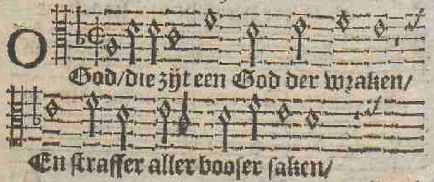 O
God/die zijt een God der wraken/
En straffer aller booser saken/